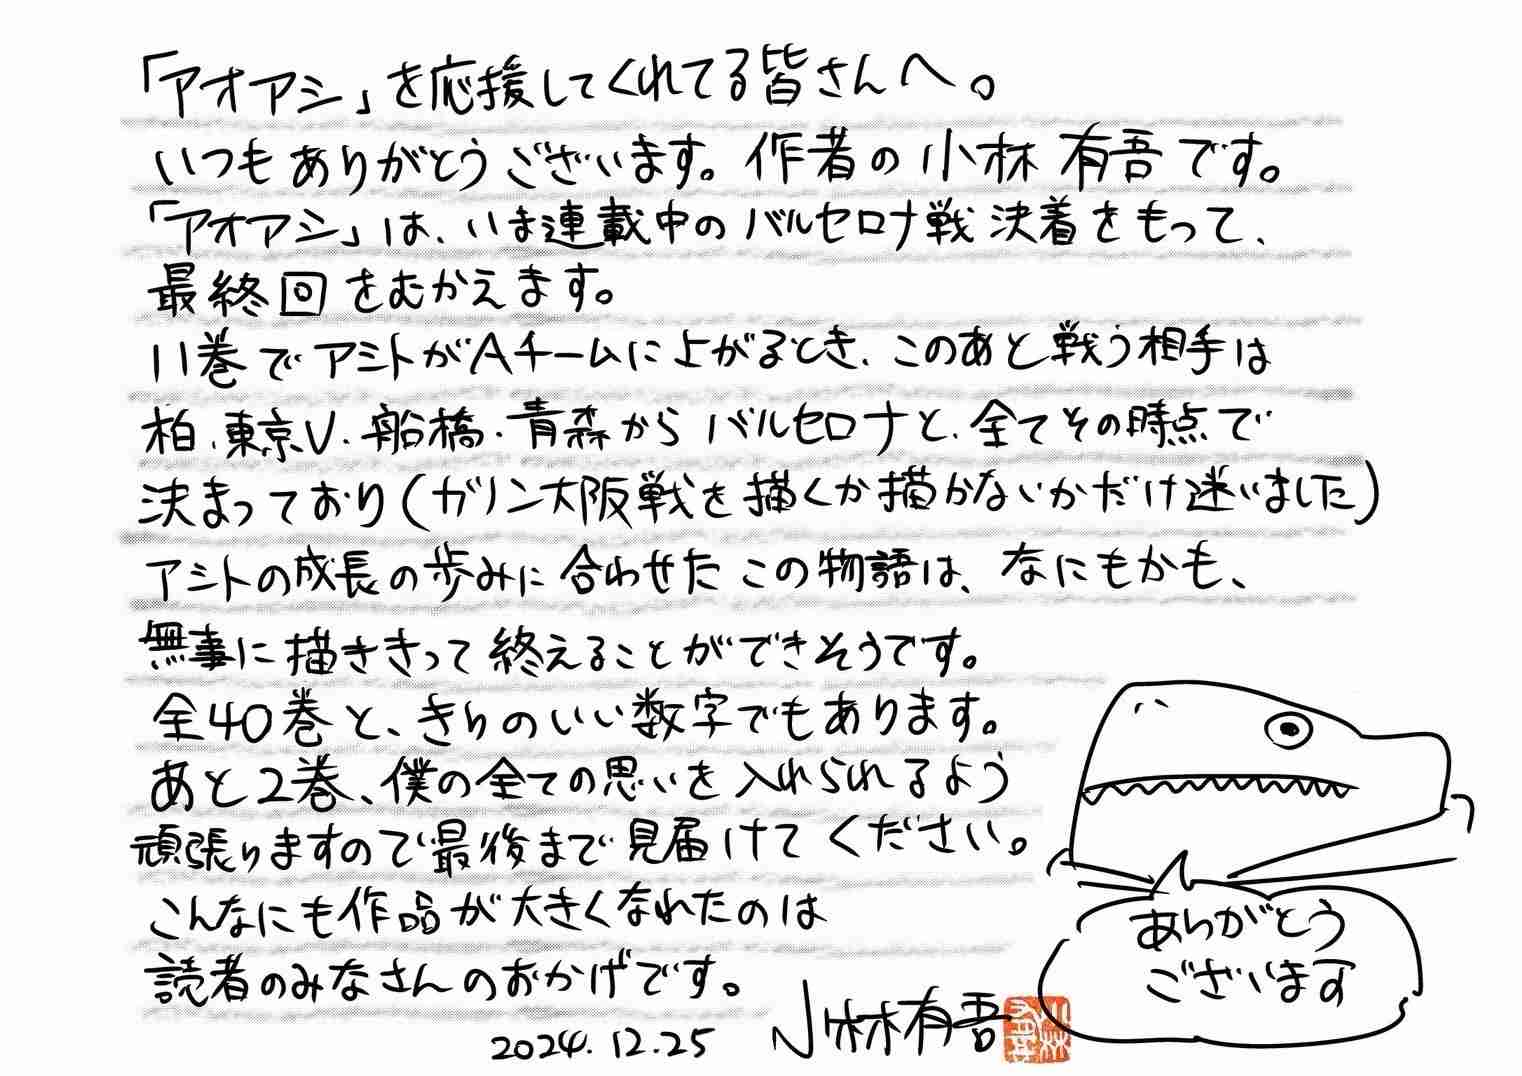 「アオアシ」を応援してくれてる皆さんへ。
いつもありがとうございます。作者の小林有吾です。
「アオアシ」は、いま連載中のバルセロナ戦決着をもって、
最終回をむかえます。
11巻でアシトがAチームに上がるとき、このあと戦う相手は
柏、東京V、船橋、青森からバルセロナと、全てその時点で
決まっており(ガリン大阪戦を描くか描かないかだけ迷いました)
アシトの成長の歩みに合わせたこの物語は、なにもかも、
無事に描ききって終えることができそうです。
全40巻と、きりのいい数字でもあります。
あと2巻、僕の全ての思いを入れられるよう
頑張りますので最後まで見届けてください。
こんなにも作品が大きくなれたのは
読者のみなさんのおかげです。
2024.12.25 小林有吾
ありがとう
ございます